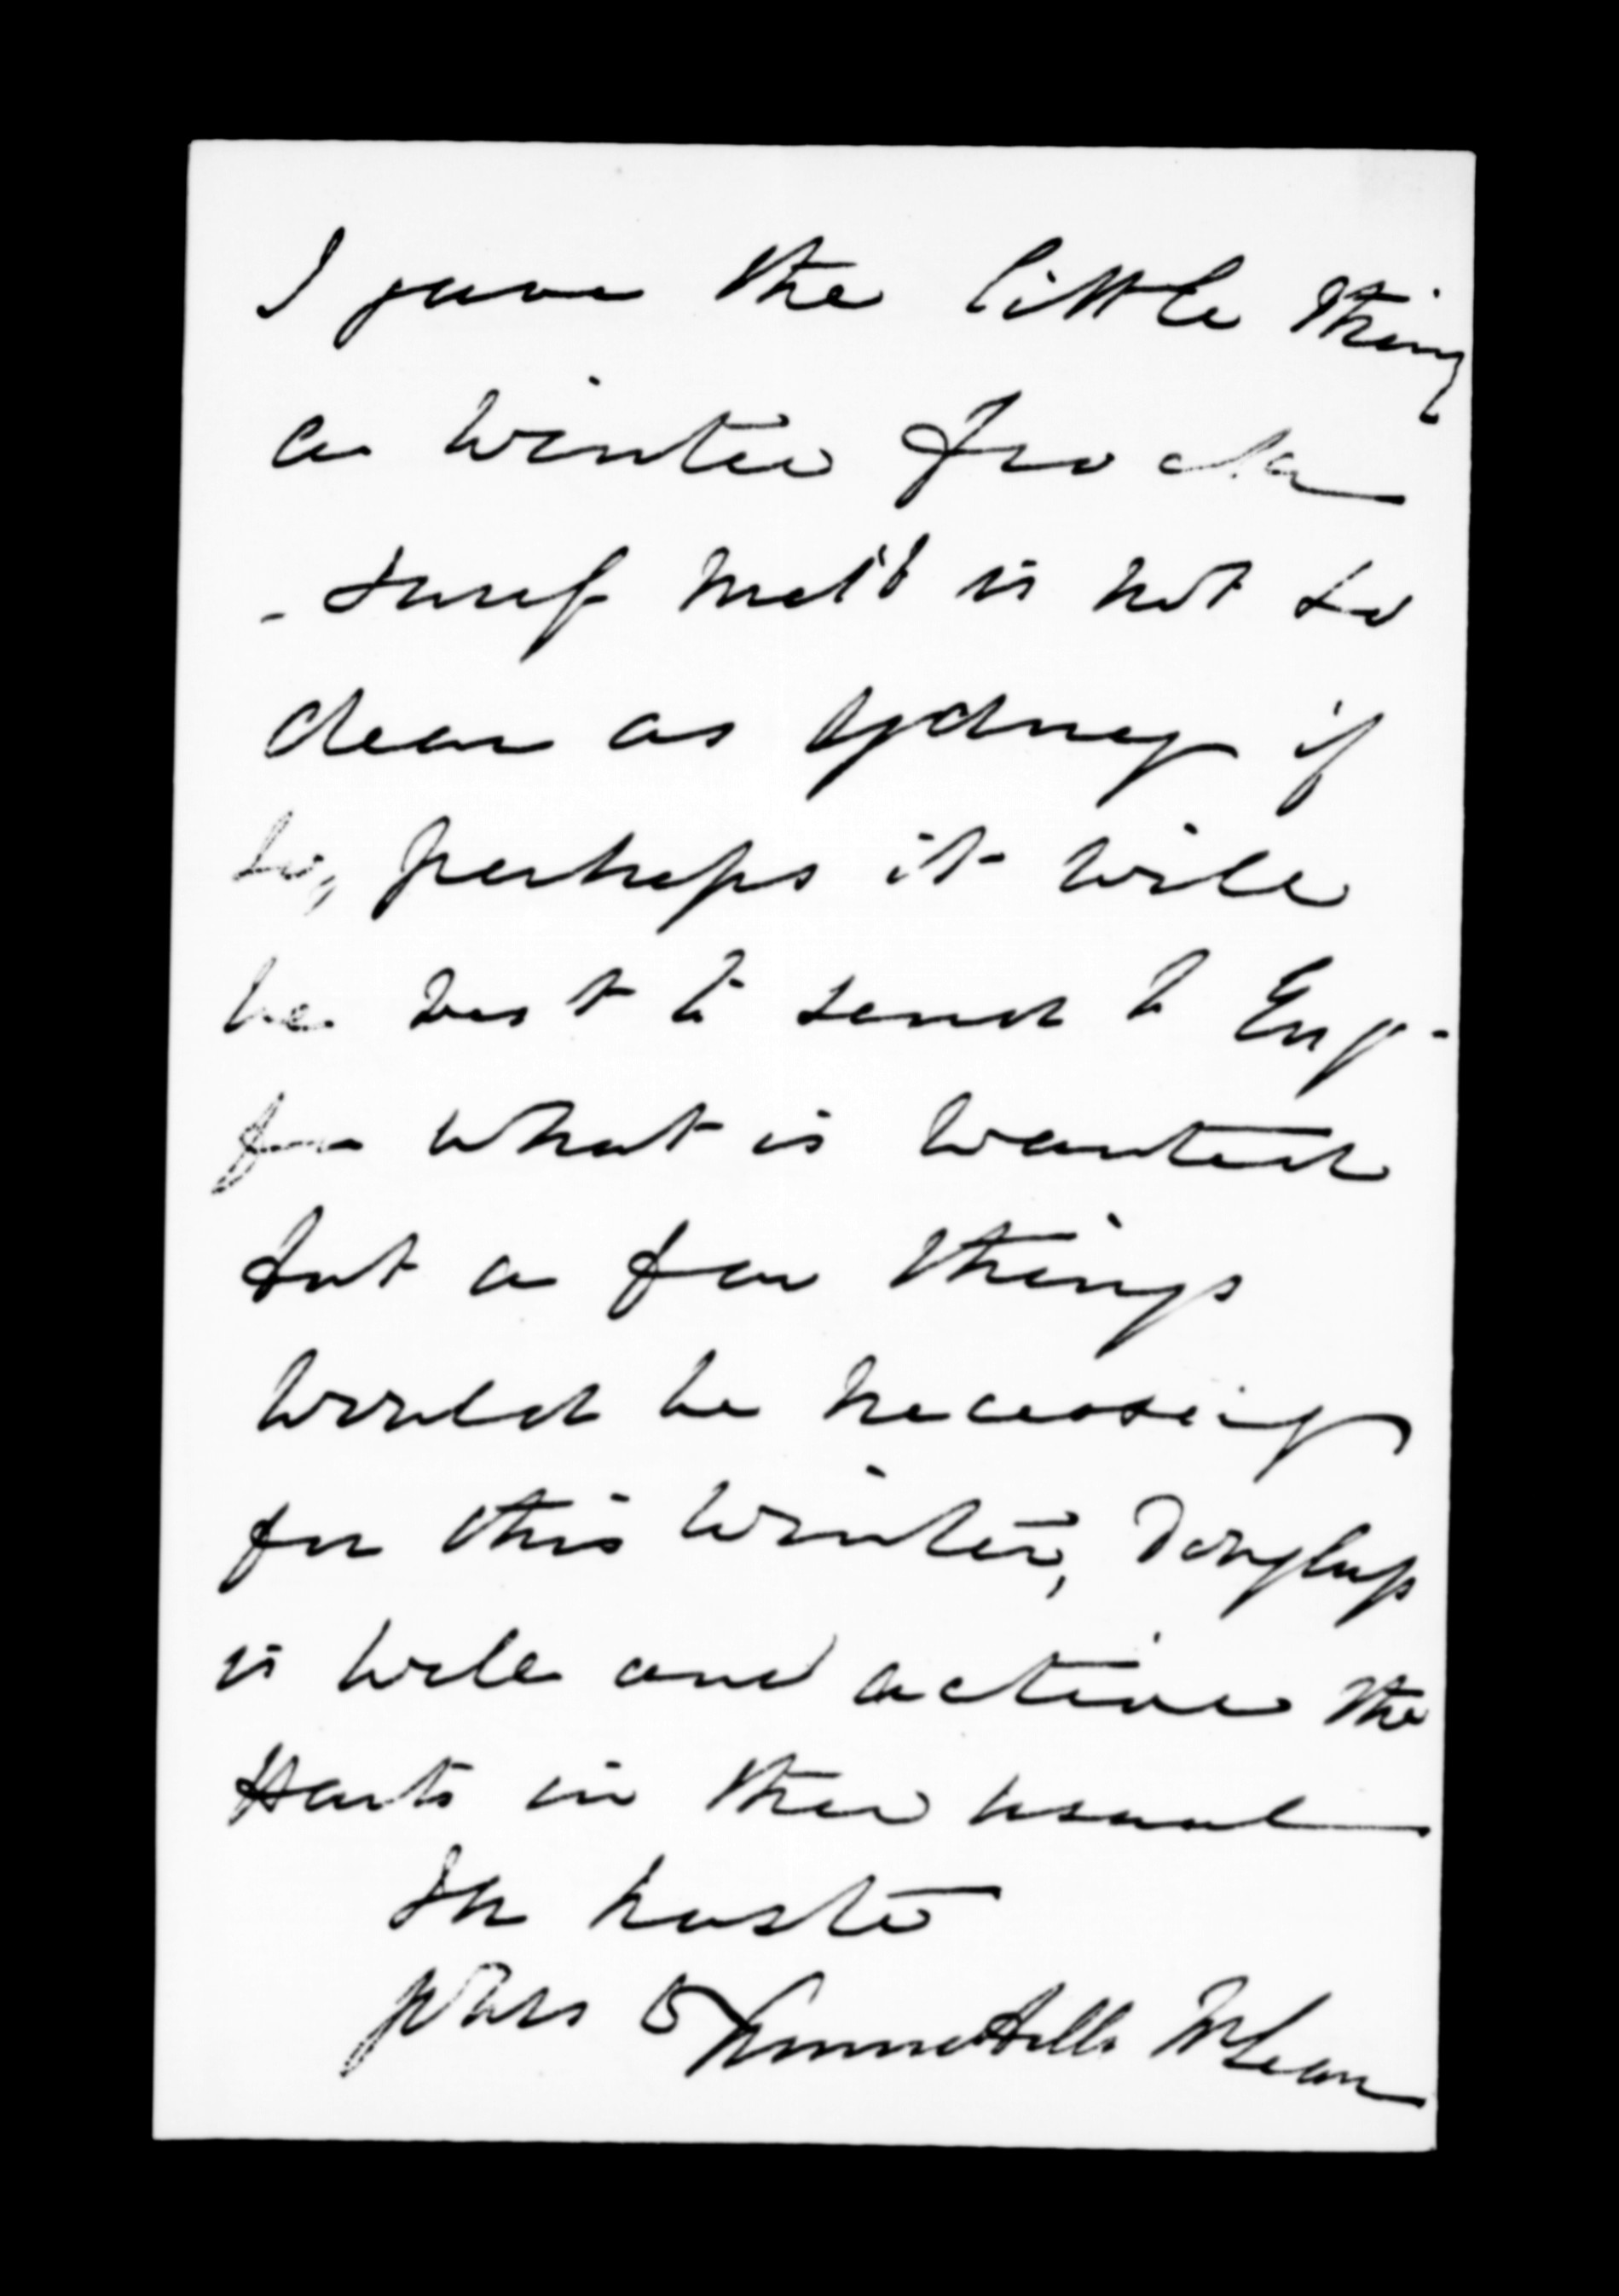 I gave the little thing
a winter frock
- Surely Mel'b is not so
dear as Sydney if
so, perhaps it will
be best to send to Eng-
for what is wanted
but a few things
would be necessary
for this winter, Douglas
is well and active the
Harts in their usual
In haste
yrs McLean